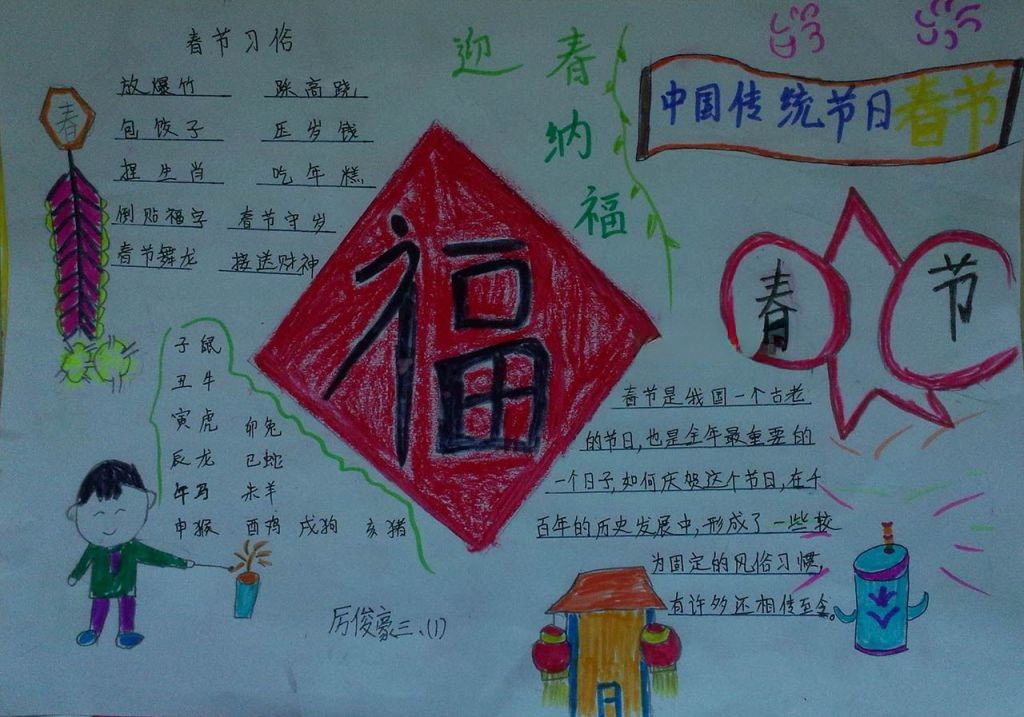 春节习俗
放爆竹 踩高跷
包饺子 压岁钱
捏生肖 吃年糕
倒贴福字 春节守岁
春节舞龙 接送财神
春
迎春纳福
中国传统节日春节
福
春节
子鼠
丑牛
寅虎 卯兔
辰龙 巳蛇
午马 未羊
申猴 酉鸡 戌狗 亥猪
春节是我国一个古老
的节日,也是全年最重要的
一个日子,如何庆贺这个节日,在千
百年的历史发展中,形成了一些较
为固定的风俗习惯,
有许多还相传至今。
厉俊豪三.(1)